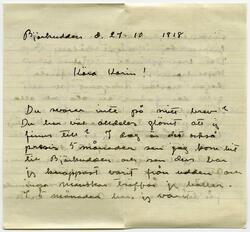 Björkudden d. 27-10 1918
Kära Karin!
Du svarar inte på mitt brev?
Du har väl alldeles glömt att jag
finns till? I dag är det också
precis 5 månader sen jag kom hit
till Björkudden och sen dess har
jag knappast varit från udden och
inga människor träffat jag heller.
I 5 månader har jag varit